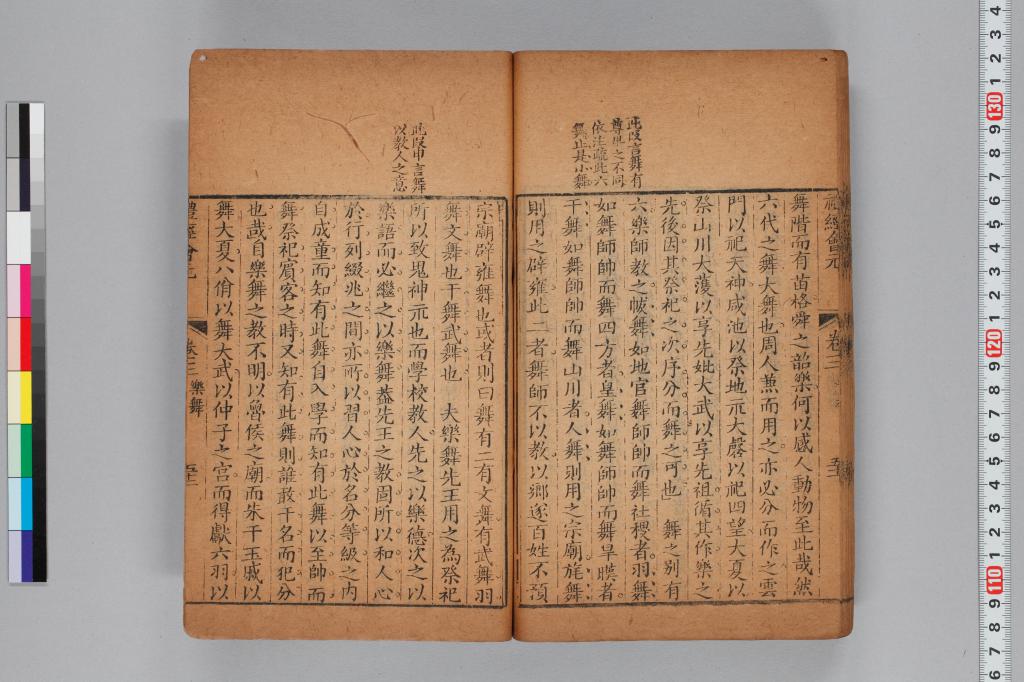 此段言舞有
尊卑之不同
依注疏此六
舞止是小舞
禮經會元
卷三
舞階而有苗格舜之韶樂何以感人動物至此哉然
六代之舞大舞也周人兼而用之亦必分而作之雲
門以祀天神咸池以祭地示大磬以祀四望大夏以
祭山川大濩以享先妣大武以享先祖循其作樂之
先後因其祭祀之次序分而舞之可也 舞之別有
六樂師教之帗舞如地官舞師帥而舞社稷者羽舞
如舞師帥而舞四方者皇舞如舞師帥而舞旱暵者
干舞如舞師帥而舞山川者人舞則用之宗廟旄舞
則用之辟雍此二者舞師不以教以鄉遂百姓不預
此段申言舞
以教人之意
宗廟辟雍舞也或者則曰舞有二有文舞有武舞羽
舞文舞也干舞武舞也 夫樂舞先王用之為祭祀
所以致鬼神示也而學校教人先之以樂德次之以
樂語而必繼之以樂舞葢先王之教固所以和人心
於行列綴兆之間亦所以習人心於名分等級之內
自成童而知有此舞自入學而知有此舞以至帥而
舞祭祀賓客之時又知有此舞則誰敢干名而犯分
也哉自樂舞之教不明以魯侯之廟而朱干玉戚以
舞大夏八佾以舞大武以仲子之宮而得獻六羽以
禮經會元
卷三
樂舞